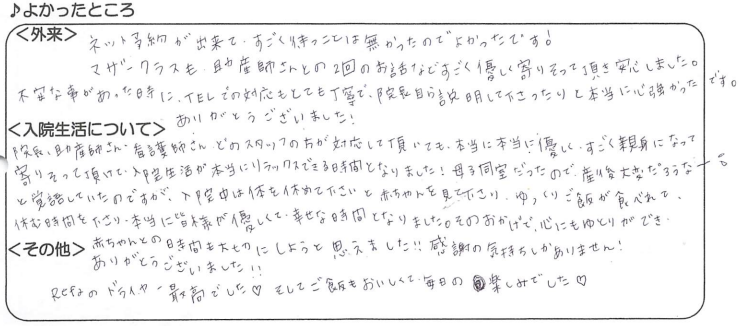 ♪よかったところ
<外来> ネット予約が出来て、すごく待つことは無かったのでよかったです!
マザークラスも、助産師さんとの2回のお話などすごく優しく寄りそって頂き安心しました。
不安な事があった時に、TELでの対応もとても丁寧で、院長自ら説明して下さったりと本当に心強かったです。
ありがとうございました!
<入院生活について>
院長、助産師さん、看護師さん、どのスタッフの方が対応して頂いても、本当に本当に優しく、すごく親身になって
寄りそって頂けて、入院生活が本当にリラックスできる時間となりました!母子同室だったので、産後大変だろうなー。
と覚悟していたのですが、入院中は体を休めて下さいと赤ちゃんを見て下さり、ゆっくりご飯が食べれて、
休む時間を下さり、本当に皆様が優しくて、幸せな時間となりました。そのおかげで、心にもゆとりができ、
<その他> 赤ちゃんとの時間も大切にしようと思えました!!感謝の気持ちしかありません!
ありがとうございました!!
Refaのドライヤー最高でした♡ そしてご飯もおいしくて、毎日の楽しみでした♡